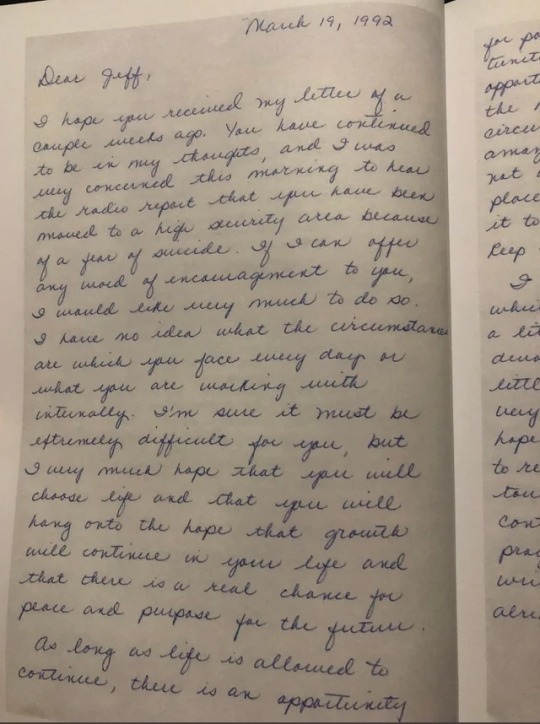 March 19, 1992
Dear Jeff,
I hope you received my letter of a
couple weeks ago. You have continued
to be in my thoughts, and I was
very concerned this morning to hear
the radio report that you have been
moved to a high security area because
of a fear of suicide. If I can offer
any word of encouragement to you,
I would like very much to do so.
I have no idea what the circumstances
are which you face every day or
what you are working with
internally. I'm sure it must be
extremely difficult for you, but
I very much hope that you will
choose life and that you will
hang onto the hope that growth
will continue in your life and
that there is a real chance for
peace and purpose for the future.
As long as life is allowed to
continue, there is an opportunity
for
the
circu
amaz
not a
place
it to
keep
I
which
a lit
little
very
hope
to re
con